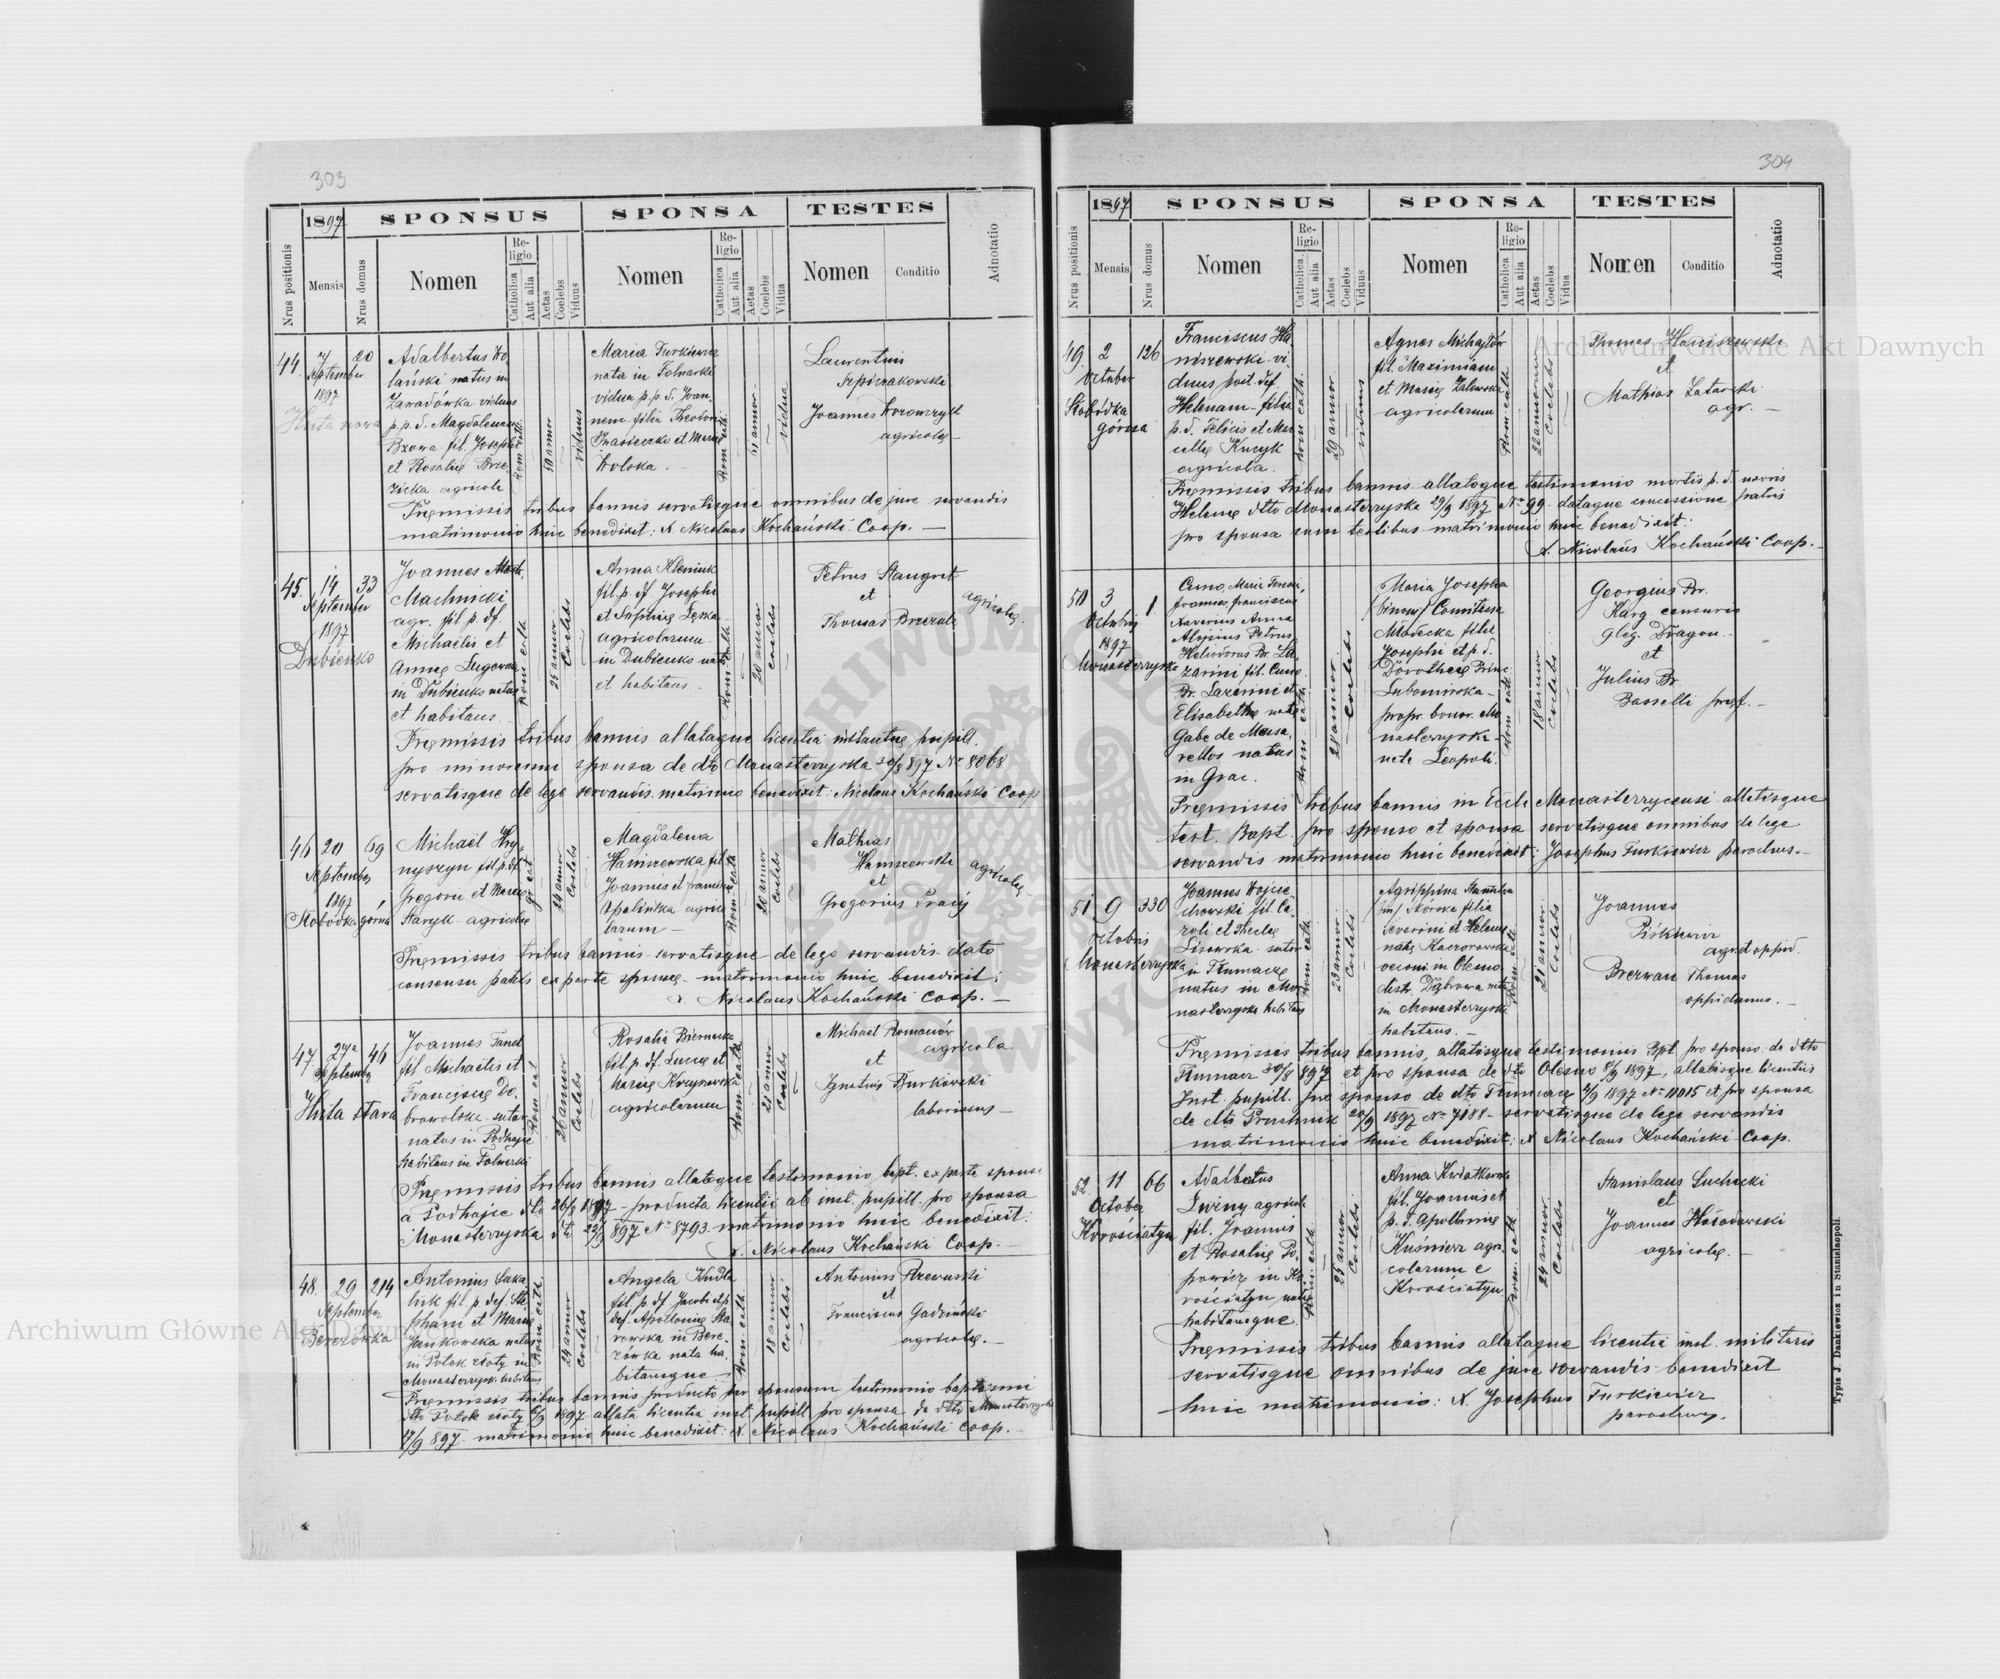 303
1897
SPONSUS
SPONSA
TESTES
Nrus positionis
Mensis
Nrus domus
Nomen
Religio
Catholica
Aut alia
Aetas
Coelebs
Viduus
Nomen
Religio
Catholica
Aut alia
Aetas
Coelebs
Vidua
Nomen
Conditio
Adnotatio
44.
7
September
1897
Huta nowa
20
Adalbertus Wo
lański natus in
Zawadówka viduus
p.p.d. Magdalenam
Bzowa fil. Josephi
et Rosalię Brze
zicka agricola
Rom. cath.
50 annor
viduus
Maria Turkiewicz
nata in Folwarki
vidua p.p.d. Joan
nem filia Theodori
et Marię
Wolska.
Rom. cath.
51 annor
vidua
Laurentius
Szpiczakowski
Joannes
agricolę
Pręmissis tribus bannis servatisque omnibus de jure servandis
matrimonio huic benedixit: X. Nicolaus Kochański Coop.
45.
14
September
1897
Dubienko
33
Joannes
Machnicki
agr. fil. p. df.
Michaelis et
Annę Ługowa
in Dubienko natus
et habitans
Rom. cath.
25 annor
Coelebs
Anna Kleniuk
fil. p. df. Josephi
et Sophię Lęska
agricolarum
in Dubienko na
et habitans
Rom. cath.
20 annor
coelebs
Petrus Staugret
et
Thomas Brzezola
agricolę.
Pręmissis tribus bannis allataque licentia instantię pupill.
pro minorenni sponsa de dto Monasterzyska 30/8 897 Nr 8068
servatisque de lege servandis matrimonio benedixit: Nicolaus Kochański Coop
46
20
September
1897
Słobódka górna
69
Michaël Hry
nyszyn fil. p. df.
Gregorii et Marię
Haryk agricolę
gr. cat
24 annor
Coelebs
Magdalena
Haniszewska fil.
Joannis et Francisę
Opalińska agrico
larum
Rom. cath
20 annor
coelebs
Mathias
Haniszewski
et
Gregorius
agricolę
Pręmissis tribus bannis servatisque de lege servandis dato
consensu patris ex parte sponsę matrimonio huic benedixit:
X. Nicolaus Kochański Coop.
47
27a
September
Huta stara
46
Joannes Tandl
fil. Michaelis et
Franciscę Do
browolska sutor
natus in Podhajce
habitans in Folwarki
Rom. cat
26 annor
Coelebs
Rosalia Biernacka
fil. p. df. Lucę et
Marię Krzyżowska
agricolarum
Rom. cath
21 annor
Coelebs
Michael Romanów
agricola
et
Ignatius Burkowski
laboriosus
Pręmissis tribus bannis allatoque testimonio bapt. ex parte sponsi
a Podhajce dto 26/8 1897 producta licentia ab inst. pupill. pro sponsa
Monasterzyska dto 22/9 897 Nr 8793 matrimonio huic benedixit:
X. Nicolaus Kochański Coop.
48.
29
September
Berezówka
214
Antonius Saka
liuk fil. p. def. Ste
phani et Marię
Jankowska natus
in Potok złoty in
Monasterzysk. habitans
Rom. cath.
24 annor
Coelebs
Angela Kudla
fil. p. df. Jacobi et p.
def. Apollonię Sta
rowska in Bere
zówka nata ha
bitansque
Rom. cath.
18 annor
Coelebs
Antonius Rzewuski
et
Franciscus Gadziński
agricolę.
Pręmissis tribus bannis producto per sponsum testimonio baptismi
dto Potok złoty 6/9 1897 allata licentia inst. pupill. pro sponsa de dto Monasterzyska
17/9 897 matrimonio huic benedixit: X. Nicolaus Kochański Coop.
304
1897
SPONSUS
SPONSA
TESTES
Nrus positionis
Mensis
Nrus domus
Nomen
Religio
Catholica
Aut alia
Aetas
Coelebs
Viduus
Nomen
Religio
Catholica
Aut alia
Aetas
Coelebs
Vidua
Nomen
Conditio
Adnotatio
49.
2
October
Słobódka
górna
126
Franciscus Ha
niszewski vi
duus post def.
Helenam filius
p. d. Felicis et Mar
cellę Kucyk
agricola.
Rom. cath.
29 annor
viduus
Agnes Michajłów
fil. Maximiani
et Marię Zalewska
agricolarum
Rom. cath
22 annorum
Coelebs
Thomas Haniszewski
et
Mathias Zatorski
agr.
Pręmissis tribus bannis allatoque testimonio mortis p. d. uxoris
Helenę dto Monasterzyska 29/9 1897 Nr 99 dataque concessione patris
pro sponsa cum testibus matrimonio huic benedixit:
X. Nicolaus Kochański Coop.
50
3
Octobris
1897
Monasterzyska
1
Cuno, Maria Teresia,
Joannes, Franciscus
Xaverius Anna
Aloysius Petrus
Heliodorus Br. La
zarini fil. Cuno
Br. Lazarini et
Elisabethę natę
Gabe de Massa
rellos natus
in Grac.
Rom. cath
28 annor.
Coelebs
Maria Josepha
Comitessa
Młodecka filia
Josephi et p. d.
Dorotheę Princ.
Lubomirska
propr. bonor. Mo
nasterzyska
nata Leopoli.
Rom. cath.
18 annor
Coelebs
Georgius Br.
Karg
Dragon.
et
Julius Br.
Basselli
Pręmissis tribus bannis in Eccle Monasterzycensi allatisque
test. Bapt. pro sponso et sponsa servatisque omnibus de lege
servandis matrimonio huic benedixit: Josephus Turkiewicz parochus.
51
9
Octobris
Monasterzyska
330
Joannes Wojcie
chowski fil. Ca
roli et Theclę
Lisowska sutor
in Tłumacz
natus in Mo
nasterzyska habitans
Rom. cath
23 annor.
Coelebs
Agrippina Stanisława
Skórska filia
Severini et Helenę
natę Kaczorowska
in Olesno
distr. Dąbrowa nata
in Monasterzyska
habitans.
Rom. cath
21 annor.
Coelebs
Joannes
Piskwicz
agr. et oppid.
Brezwan Thomas
oppidanus.
Pręmissis tribus bannis, allatisque testimoniis Bpt. pro sponso de dtto
Tłumacz 30/8 897 et pro sponsa de dto Olesno 8/9 1897, allatisque licentiis
Inst. pupill. pro sponso de dto Tłumacz 4/9 1897 Nr 11015 et pro sponsa
de dto Pruchnik 20/9 1897 Nr 7188 servatisque de lege servandis
matrimonio huic benedixit: X. Nicolaus Kochański Coop.
52.
11
October
Korościatyn
66
Adalbertus
Zwiny agricola
fil. Joannis
et Rosalię Po
powicz in Ko
rościatyn natus
habitansque
Rom. cath.
25 annor
Coelebs
Anna Kwiatkowska
fil. Joannis et
p. d. Apollonię
Kuśnierz agri
colarum e
Korościatyn
Rom. cath
24 annor
Coelebs
Stanislaus Suchecki
et
Joannes Horodowski
agricolę.
Pręmissis tribus bannis allataque licentia inst. militaris
servatisque omnibus de jure servandis benedixit
huic matrimonio: X. Josephus Turkiewicz
parochus.
Typis J. Dankiewicz in Stanislaopoli.
Archiwum Główne Akt Dawnych
Archiwum Główne Akt Dawnych
ARCHIWUM GŁÓWNE AKT DAWNYCH